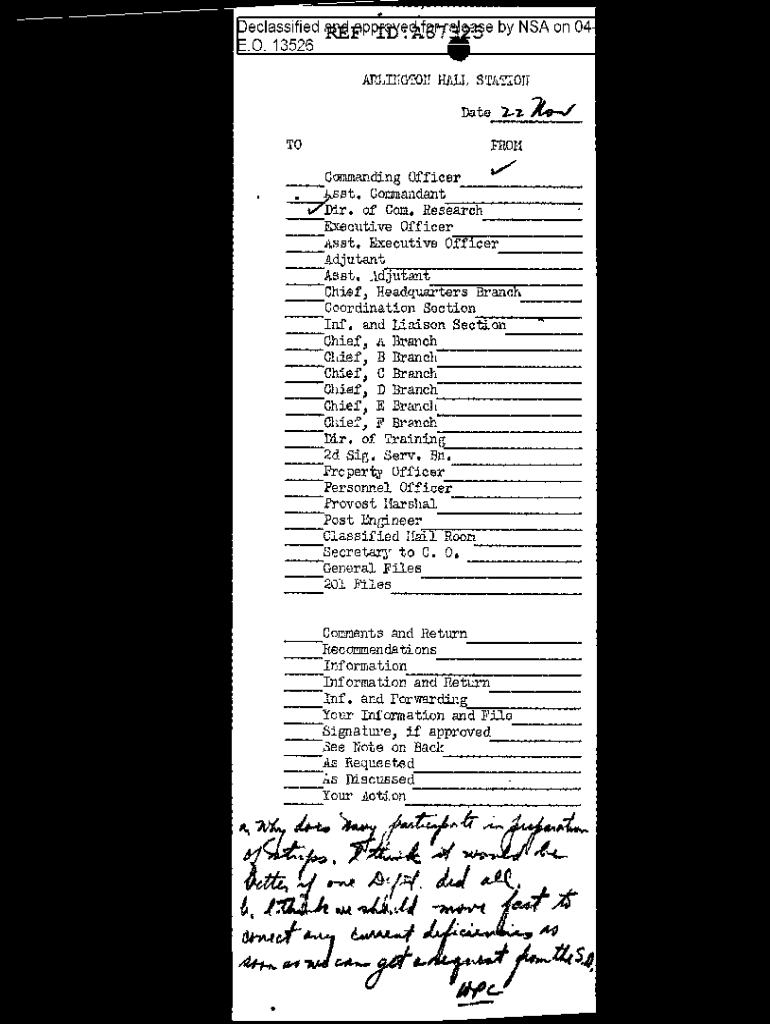 Declassified and approved for release by NSA on 04-
REF ID:A67325
E.O. 13526
ARLINGTON HALL STATION
Date 22 Nov
TO FROM
Commanding Officer ✓
Asst. Commandant
✓ Dir. of Com. Research
Executive Officer
Asst. Executive Officer
Adjutant
Asst. Adjutant
Chief, Headquarters Branch
Coordination Section
Inf. and Liaison Section
Chief, A Branch
Chief, B Branch
Chief, C Branch
Chief, D Branch
Chief, E Branch
Chief, F Branch
Dir. of Training
2d Sig. Serv. Bn.
Property Officer
Personnel Officer
Provost Marshal
Post Engineer
Classified Mail Room
Secretary to C. O.
General Files
201 Files
Comments and Return
Recommendations
Information
Information and Return
Inf. and Forwarding
Your Information and File
Signature, if approved
See Note on Back
As Requested
As Discussed
Your Action
a, Why does Navy participate in preparation
of strips. I think it would be
better if one Dept. did all.
b. I think we should move fast to
correct any current deficiencies as
soon as we can get a request from the S.D.
WPC